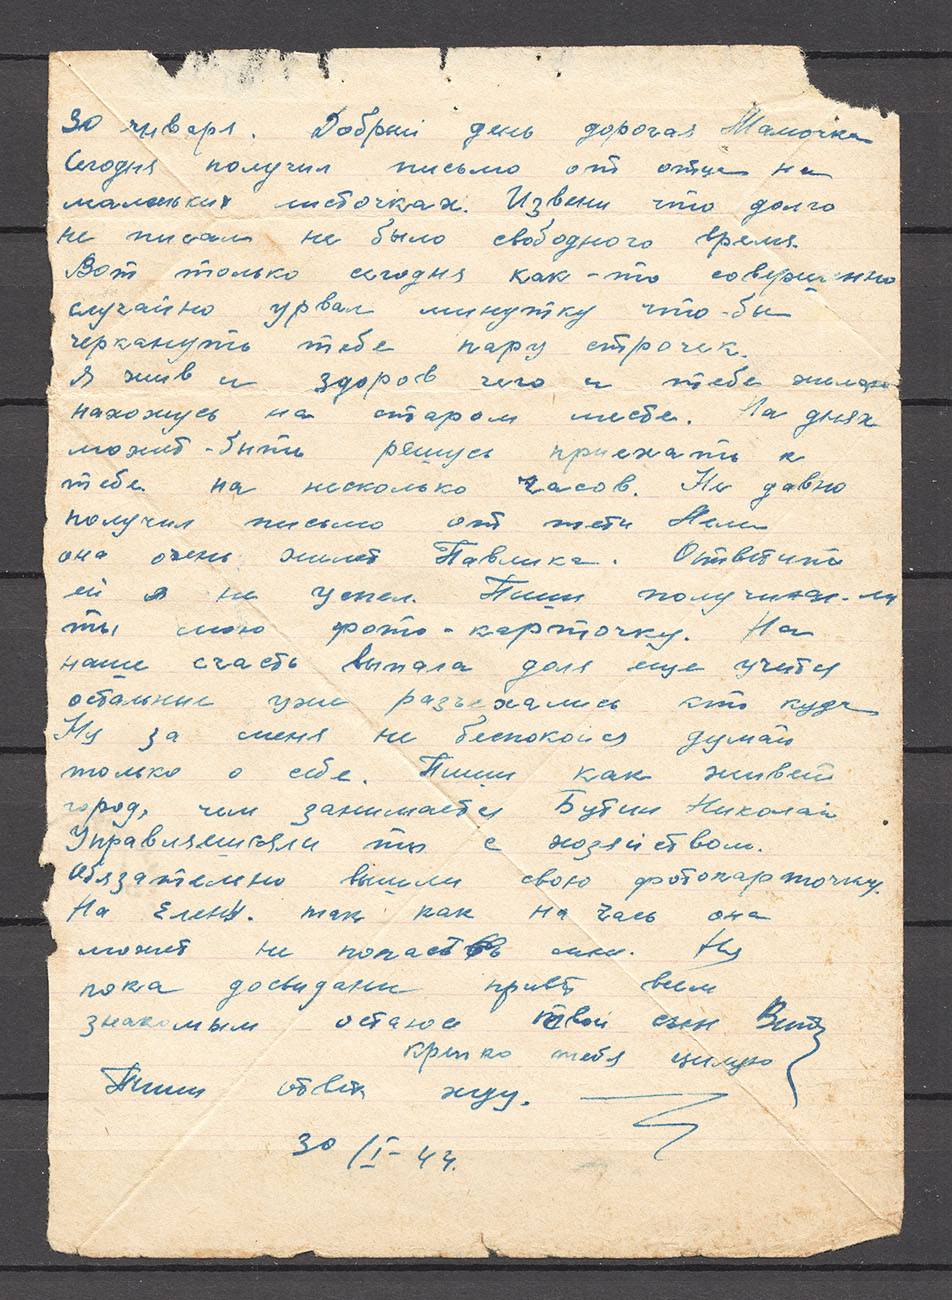 30 января. Добрый день дорогая Мамочка
Сегодня получил письмо от отца на
маленьких листочках. Извени что долго
не писал не было свободного время.
Вот только сегодня как-то совершенно
случайно урвал минутку что-бы
черкануть тебе пару строчек.
Я жив и здоров чего и тебе желаю
нахожусь на старом месте. На днях
может-быть решусь приехать к
тебе на несколько часов. Не давно
получил письмо от тети
она очень жилет Павлика. Ответить
ей я не успел. Пиши получила-ли
ты мою фото-карточку. На
наше счасть выпала доля еще учится
остальные уже разъехались кто куда
Ну за меня не беспокойся думай
только о себе. Пиши как живет
город, чем занимается Бутин Николай
Управляешься ли ты с хозяйством.
Обязательно вышли свою фотокарточку.
На Елену. так как на часть она
может не попасть мне. Ну
пока досвидани привет всем
знакомым остаюс твой сын Витя
крепко тебя целую
Пиши ответ жду.
30/I-44.